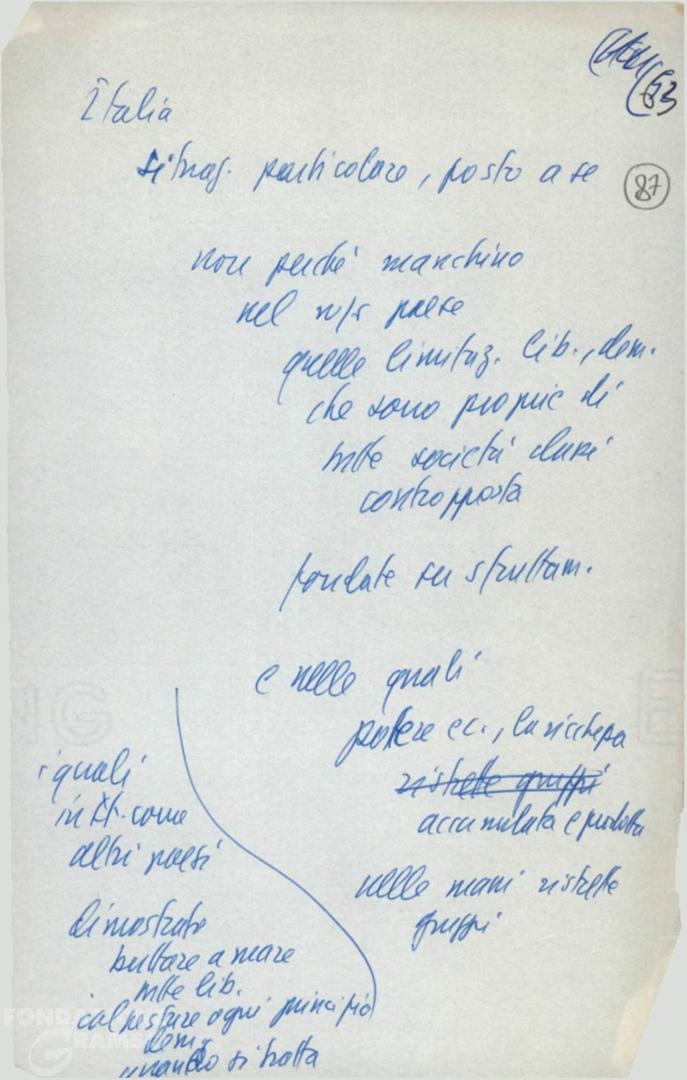 63
Italia
situaz. particolare, posto a se
87
non perché manchino
nel n/s paese
quelle limitaz. lib., dem.
che sono proprie di
tutte società classi
contrapposta
fondate su sfruttam.
e nelle quali
potere ec., la ricchezza
ristrette gruppi
accumulata e prodotta
nelle mani ristrette
gruppi
i quali
in It. come
altri paesi
dimostrato
buttare a mare
tutte lib.
calpestare ogni principio
dem.
quando si tratta
FONDA
GRAMS